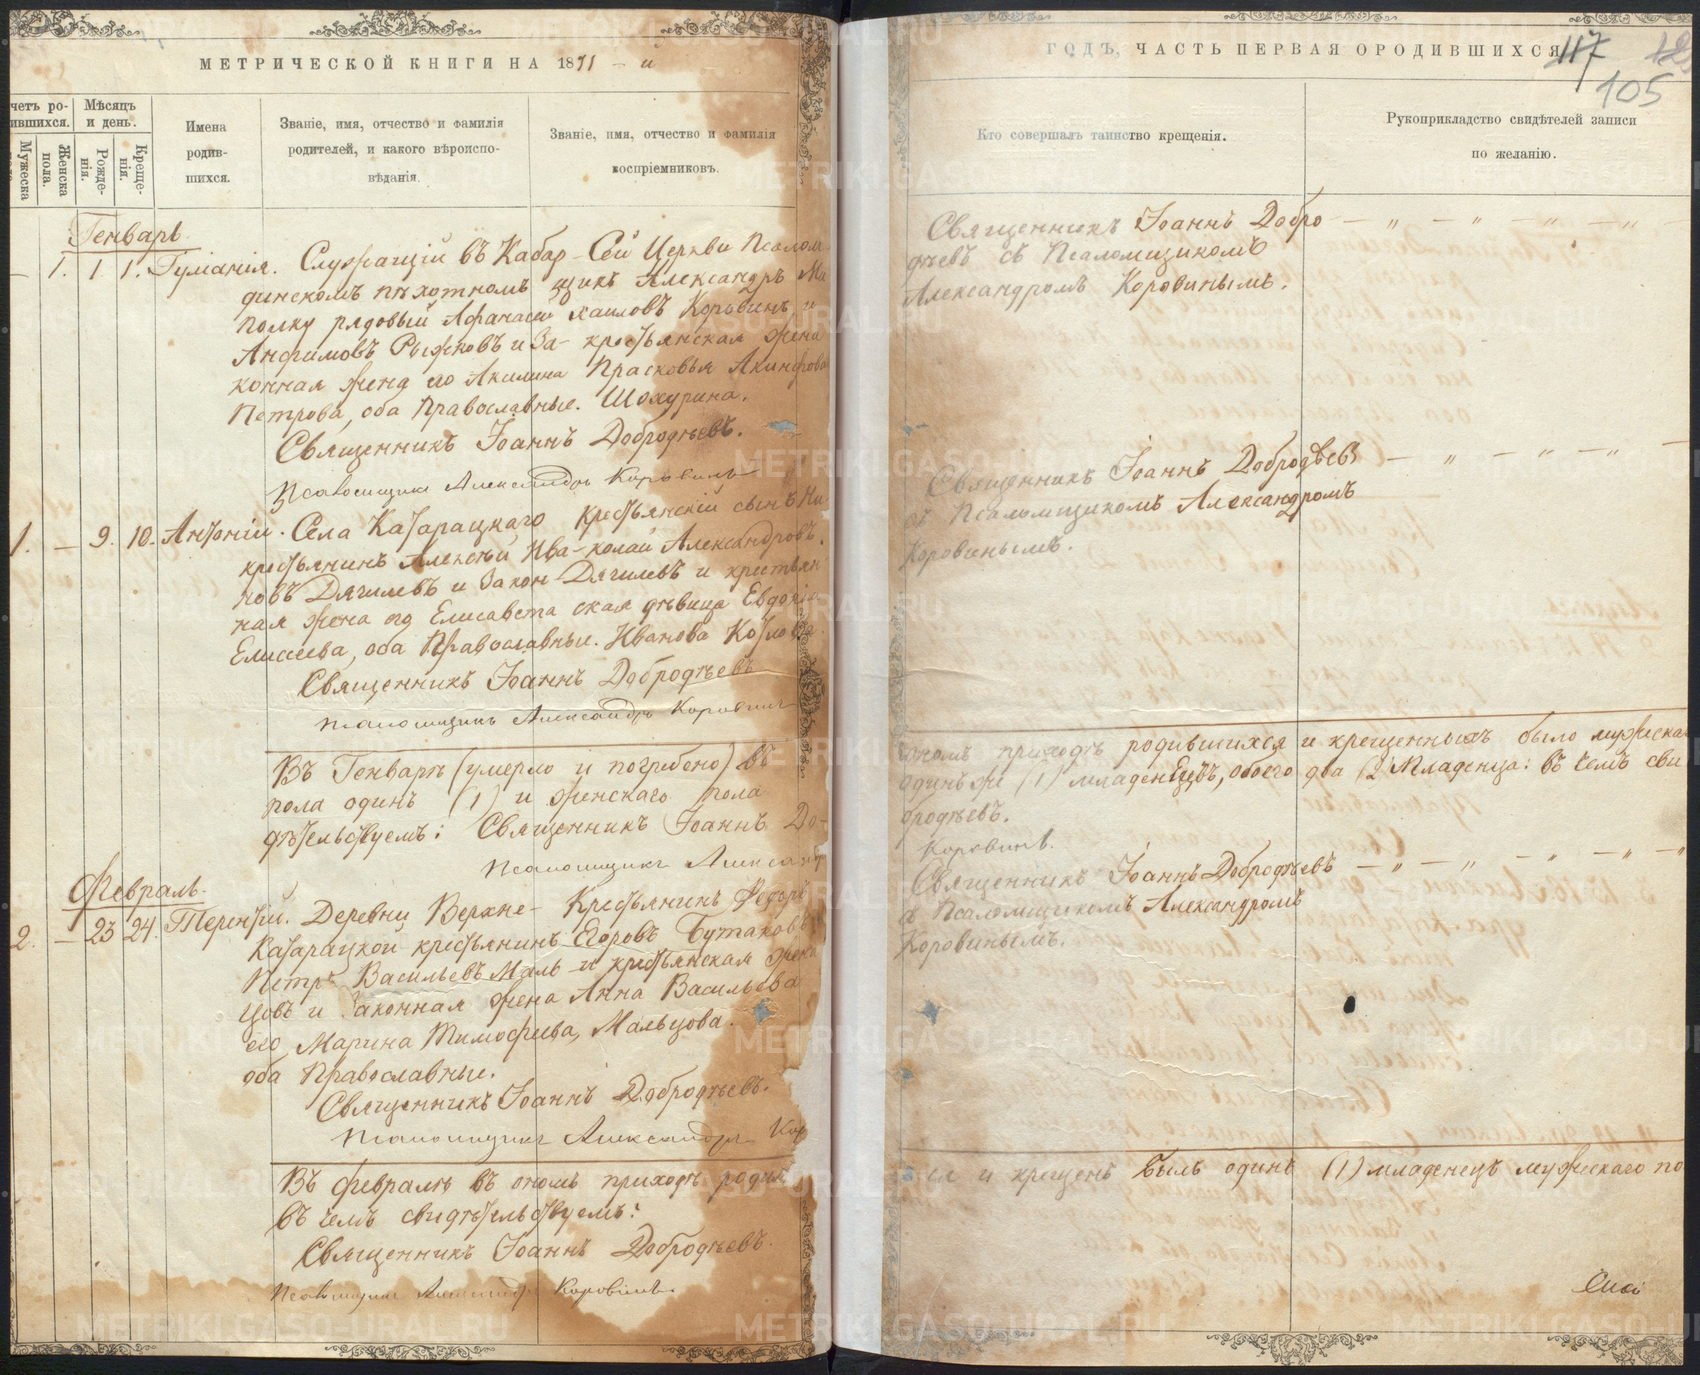 МЕТРИЧЕСКОЙ КНИГИ НА 1871 - й
четъ ро-
ившихся.
Мѣсяцъ
и день.
Мужеска
Женска
пола.
Рожде-
нія.
Креще-
нія.
Имена
родив-
шихся.
Званіе, имя, отчество и фамилія
родителей, и какого вѣроиспо-
вѣданія.
Званіе, имя, отчество и фамилія
воспріемниковъ.
Генварь
1. 1 1. Гуліанія. Служащій въ Кабар- Сей Церкви Псалом
динскомъ пѣхотномъ щикъ Александръ Ми
полку рядовый Афанасій хаиловъ Коровинъ и
Анфимовъ Рыжковъ и За- крестьянская жена
конная жена его Акилина Прасковья Акинфова
Петрова, оба Православные. Шохурина.
Священникъ Іоаннъ Добродѣевъ.
Псаломщикъ Александръ Коровинъ
1. — 9. 10. Антоній. Села Катарацкаго Крестьянскій сынъ Ни
крестьянинъ Алексѣй Ива- колай Александровъ
новъ Дягилевъ и Закон- Дягилевъ и крестьян
ная жена его Елисавета ская дѣвица Евдокія
Елисеева, оба Православные. Иванова Козлова
Священникъ Іоаннъ Добродѣевъ
Псаломщикъ Александръ Коровинъ
Въ Генварѣ (умерло и погребено) въ
пола одинъ (1) и женскаго пола
дѣтельствуемъ: Священникъ Іоаннъ До-
Псаломщикъ Александр
Февраль.
2. — 23 24. Терентій. Деревни Верхне- Крестьянинъ Федоръ
Катарацкой крестьянинъ Егоровъ Бутаковъ
Петръ Васильевъ Маль- и крестьянская жена
цовъ и Законная жена Анна Васильева
его Марина Тимофеева, Мальцова.
оба Православные.
Священникъ Іоаннъ Добродѣевъ.
Псаломщикъ Александръ Кор
Въ февралѣ въ ономъ приходѣ родил
въ чемъ свидѣтельствуемъ:
Священникъ Іоаннъ Добродѣевъ.
Псаломщикъ Александръ Коровинъ.
ГОДЪ, ЧАСТЬ ПЕРВАЯ О РОДИВШИХСЯ
117
105
Кто совершалъ таинство крещенія.
Рукоприкладство свидѣтелей записи
по желанію.
Священникъ Іоаннъ Добро — „ — „ — „ — „
дѣевъ съ Псаломщикомъ
Александромъ Коровинымъ.
Священникъ Іоаннъ Добродѣевъ — „ — „ — „
съ Псаломщикомъ Александромъ
Коровинымъ.
ономъ приходѣ родившихся и крещенныхъ было мужеска
одинъ же (1) младенецъ, обоего два (2) Младенца: въ чемъ сви
бродѣевъ.
Коровинъ.
Священникъ Іоаннъ Добродѣевъ — „ — „ — „ — „ — „
съ Псаломщикомъ Александромъ
Коровинымъ.
ся и крещенъ былъ одинъ (1) младенецъ мужескаго по
METRIKI.GASO-URAL.RU